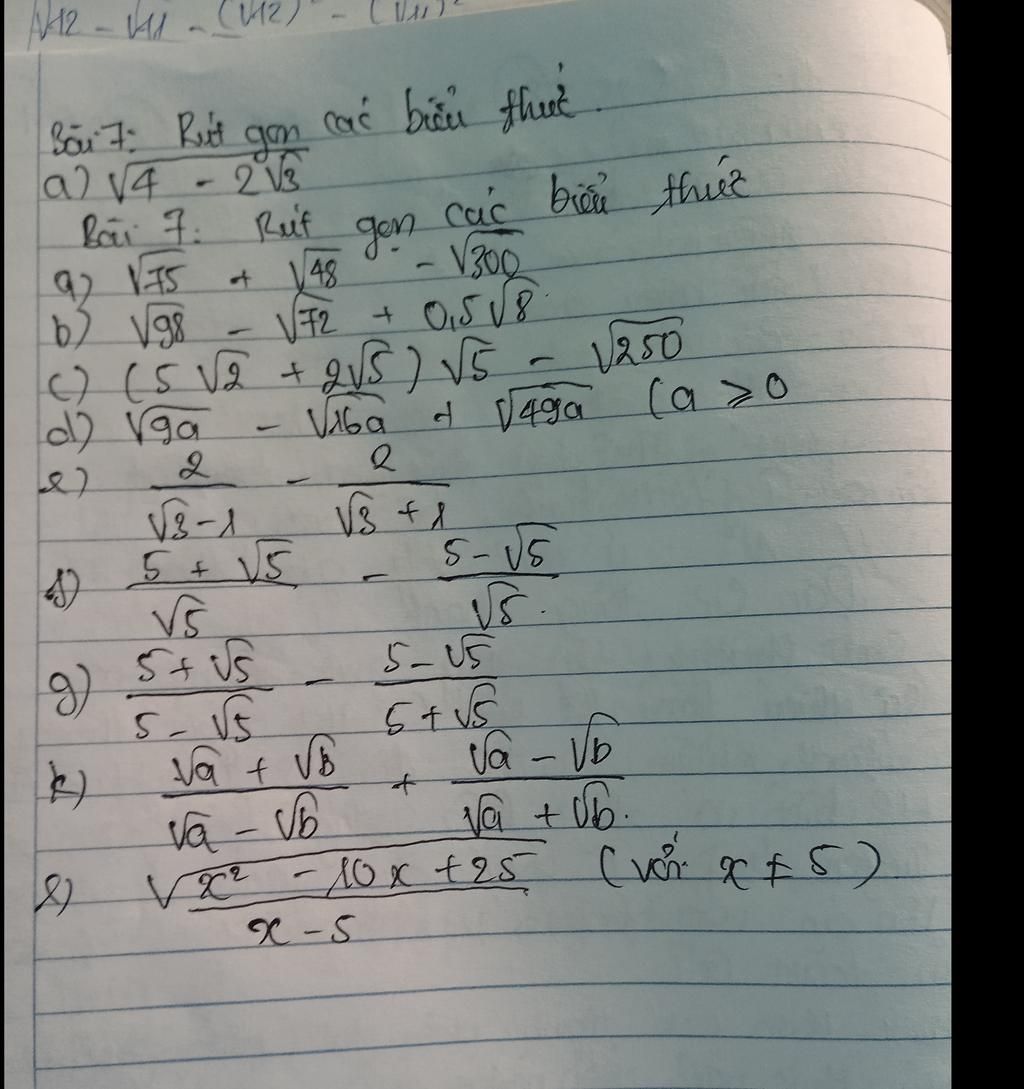 √12 - √11 - (√12)² - (√11)²
Bài 7: Rút gọn các biểu thức.
a) √(4 - 2√3)
Bài 7: Rút gọn các biểu thức
a) √75 + √48 - √300
b) √98 - √72 + 0,5√8.
c) (5√2 + 2√5)√5 - √250
d) √9a - √16a + √49a (a ⩾ 0
e) 2/(√3 - 1) - 2/(√3 + 1)
f) (5 + √5)/√5 - (5 - √5)/√5.
g) (5 + √5)/(5 - √5) - (5 - √5)/(5 + √5)
k) (√a + √b)/(√a - √b) + (√a - √b)/(√a + √b).
l) √(x² - 10x + 25)/(x - 5) (với x ≠ 5)